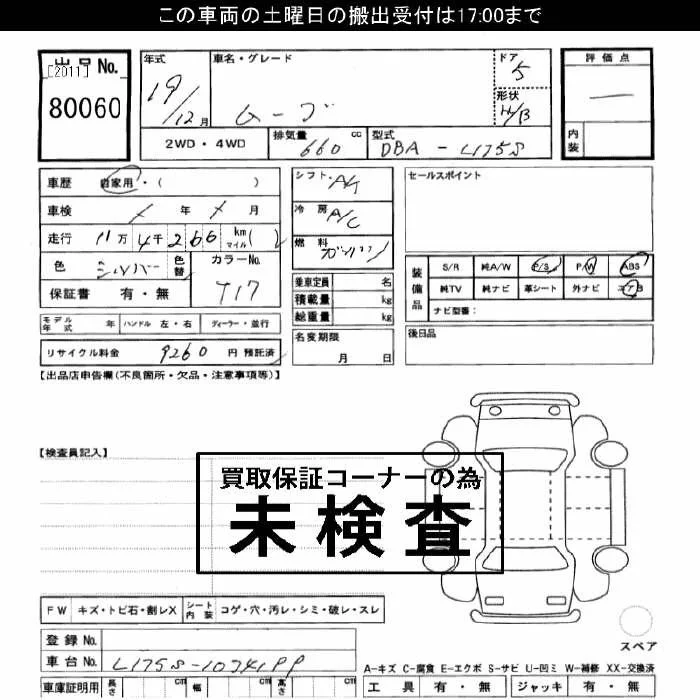 この車両の土曜日の搬出受付は17:00まで
出品No.
[2011]
80060
年式
19/12月
車名・グレード
ムーブ
ドア
5
形状
H/B
評価点
―
内装
2WD・4WD
排気量 660 cc
型式 DBA - L175S
車歴 自家用・( )
車検 / 年 / 月
走行 11万4千266 km マイル( )
色 シルバー 色替
カラーNo. T17
保証書 有・無
シフト A/T
冷房 A/C
燃料 ガソリン
乗車定員 名
積載量 kg
総重量 kg
セールスポイント
装備品
S/R 純A/W P/S P/W ABS
純TV 純ナビ 革シート 外ナビ エアB
ナビ型番:
モデル年式 年 ハンドル 左・右 ディーラー・並行
名変期限
月 日
後日品
リサイクル料金 9260 円 預託済
【出品店申告欄(不良箇所・欠品・注意事項等)】
【検査員記入】
買取保証コーナーの為
未検査
FW キズ・トビ石・割レX シート内装 コゲ・穴・汚レ・シミ・破レ・スレ
登録No.
車台No.
車庫証明用 長さ cm 幅 cm 高さ cm
スペア
A-キズ C-腐食 E-エクボ S-サビ U-凹ミ W-補修 XX-交換済
工具 有・無 ジャッキ 有・無